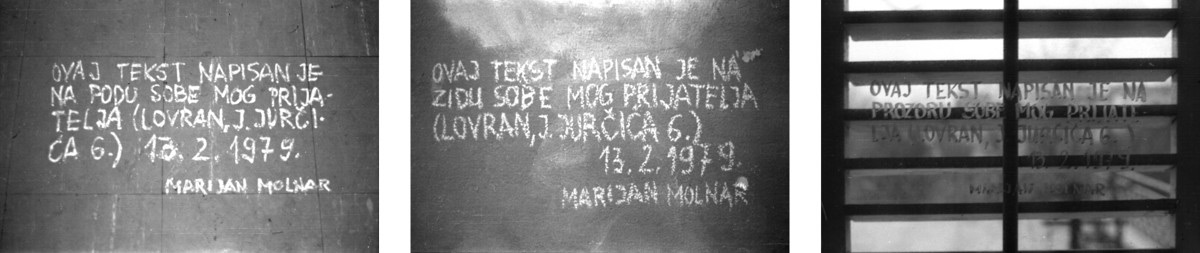 OVAJ TEKST NAPISAN JE
NA PODU SOBE MOG PRIJA-
TELJA (LOVRAN, J. JURČI-
ĆA 6.) 13. 2. 1979.
MARIJAN MOLNAR
OVAJ TEKST NAPISAN JE NA
ZIDU SOBE MOG PRIJATELJA
(LOVRAN, J. JURČIĆA 6.)
13. 2. 1979.
MARIJAN MOLNAR
OVAJ TEKST NAPISAN JE NA
PROZORU SOBE MOG PRIJATE-
LJA (LOVRAN, J. JURČIĆA 6.)
13. 2. 1979.
MARIJAN MOLNAR